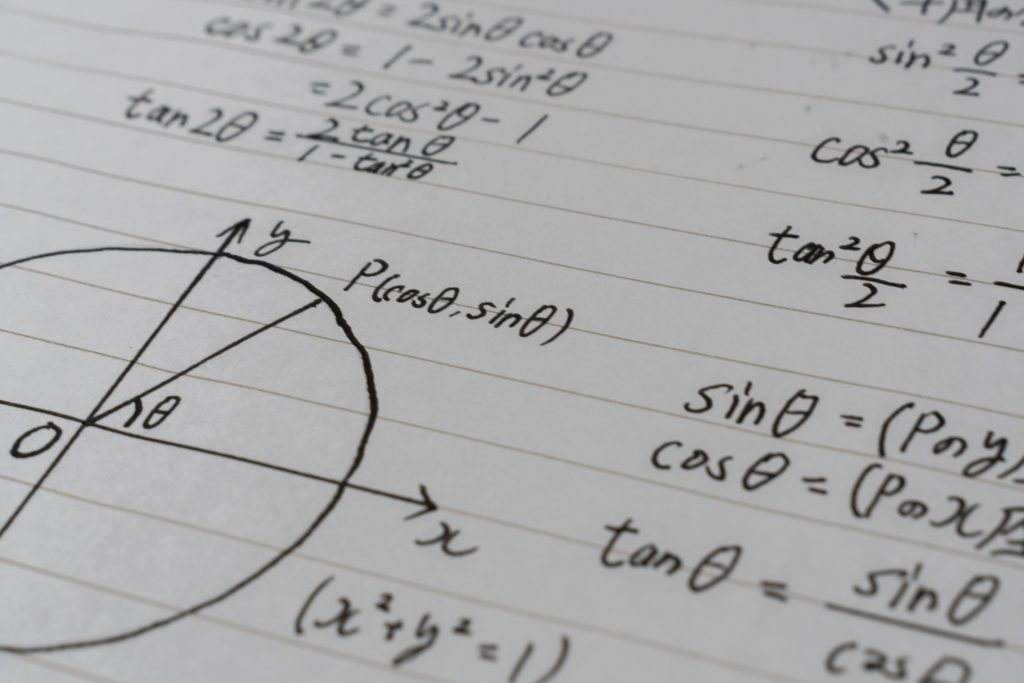 2θ = 2sinθ cosθ
cos 2θ = 1 - 2sin²θ
= 2cos²θ - 1
tan 2θ = 2 tanθ / 1 - tan²θ
sin² θ/2 =
cos² θ/2 =
tan² θ/2 =
y
P(cosθ, sinθ)
θ
O
x
(x² + y² = 1)
sinθ = (Pのy
cosθ = (Pのx
tanθ = sinθ / cosθ